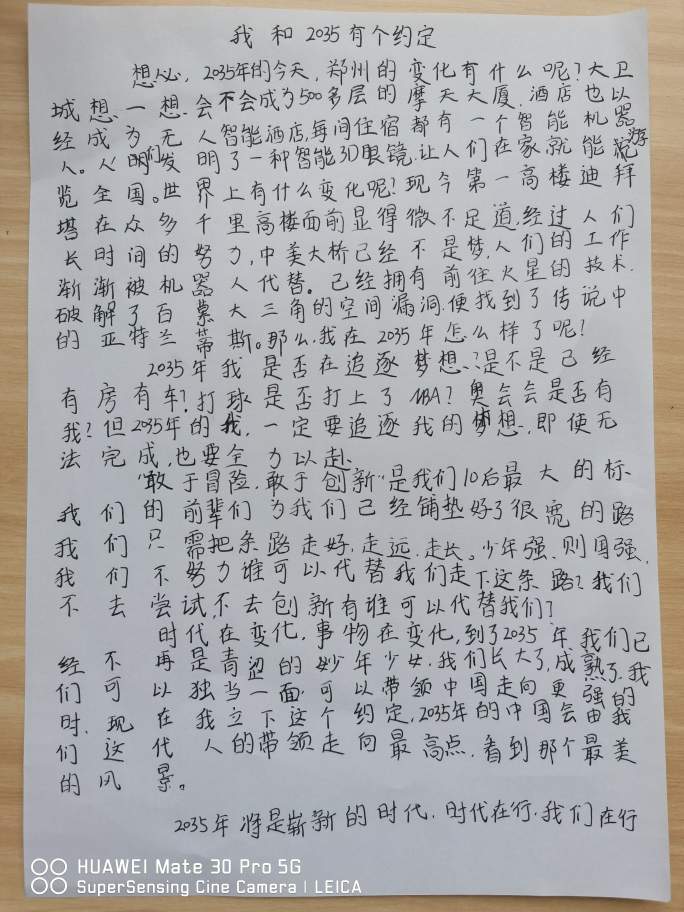 我和2035有个约定
想必,2035年的今天,郑州的变化有什么呢?大卫
城想一想会不会成为500多层的摩天大厦,酒店也以
经成为无人智能酒店,每间住宿都有一个智能机器
人。人们发明了一种智能3D眼镜,让人们在家就能游
览全国。世界上有什么变化呢?现今第一高楼迪拜
塔在众多千里高楼面前显得微不足道,经过人们
长时间的努力,中美大桥已经不是梦,人们的工作
渐渐被机器人代替。已经拥有前往火星的技术.
破解了百慕大三角的空间漏洞,便找到了传说中
的亚特兰蒂斯。那么,我在2035年怎么样了呢?
2035年我是否在追逐梦想?是不是已经
有房有车?打球是否打上了NBA?奥会会是否有
我?但2035年的我,一定要追逐我的梦想,即使无
法完成,也要全力以赴.
"敢于冒险,敢于创新"是我们10后最大的标.
我们的前辈们为我们已经铺垫好了很宽的路
我们只需把条路走好,走远,走长。少年强,则国强,
我们不努力谁可以代替我们走下这条路?我们
不去尝试,不去创新有谁可以代替我们?
时代在变化,事物在变化,到了2035年,我们已
经不再是青涩的少年少女,我们长大了,成熟了,我
们可以独当一面,可以带领中国走向更强的
时.现在我立下这个约定,2035年的中国会由我
们这代人的带领走向最高点,看到那个最美
的风景。
2035年将是崭新的时代,时代在行,我们在行
HUAWEI Mate 30 Pro 5G
SuperSensing Cine Camera | LEICA